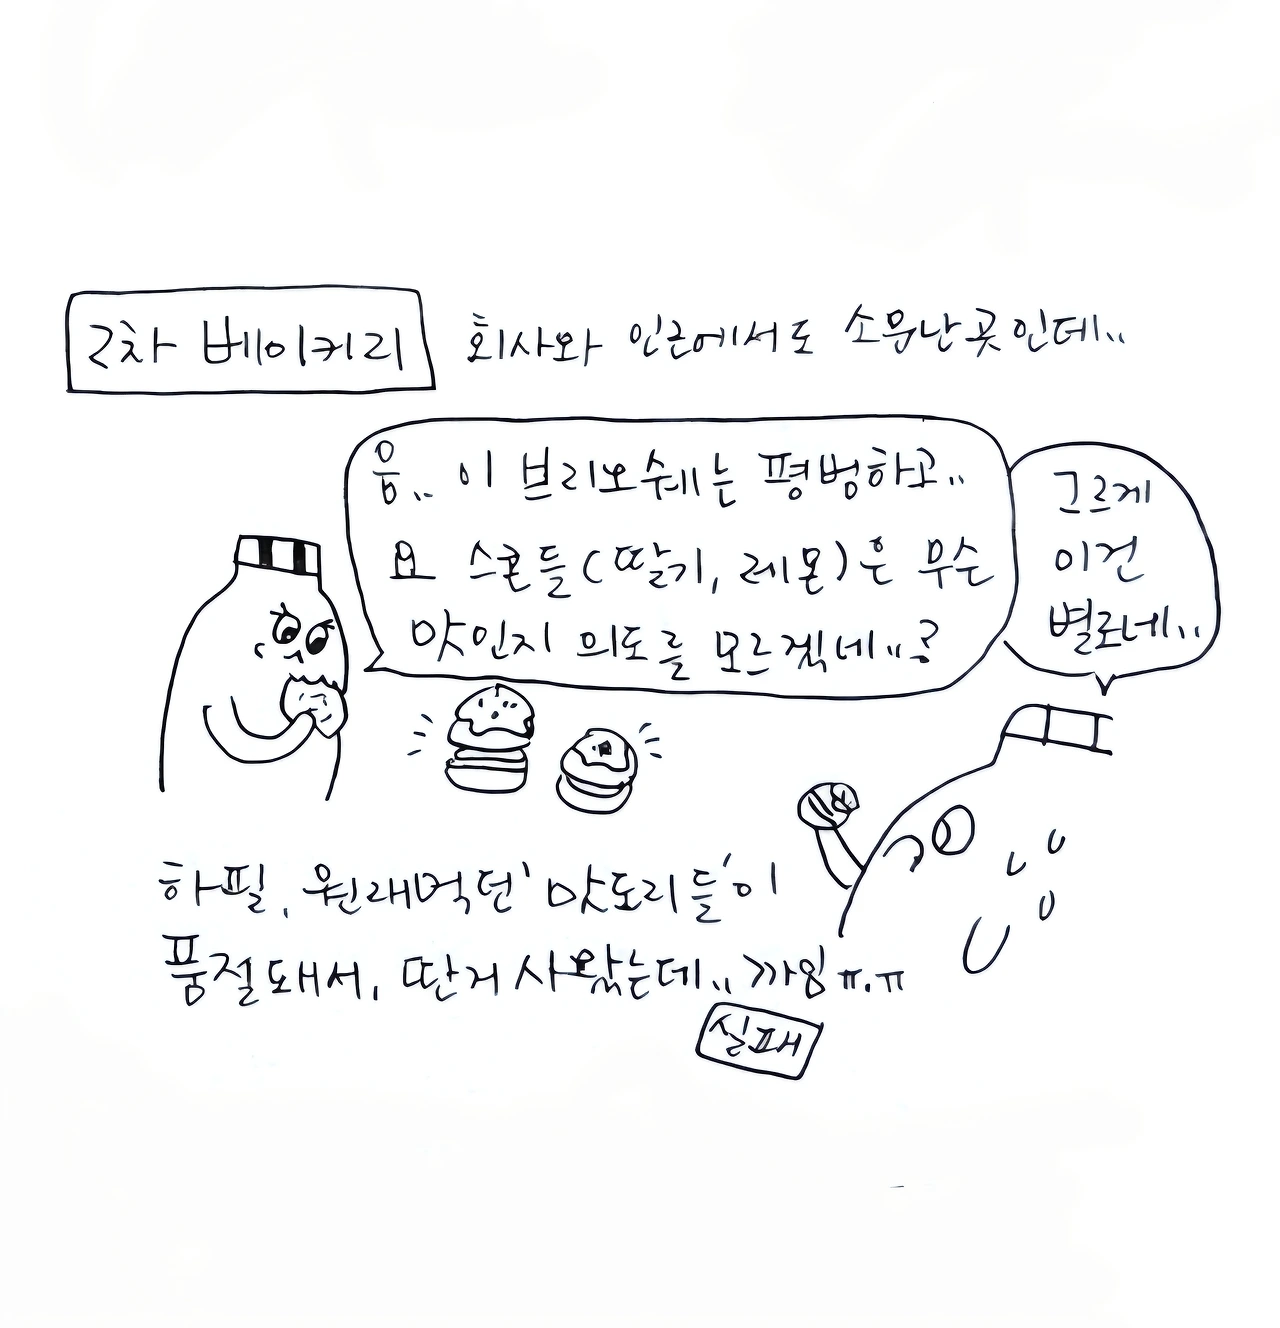 2차 베이커리
회사와 인근에서도 소문난곳인데..
음.. 이 브리오슈ㅔ는 평범하고..
요 스콘들(딸기, 레몬)은 무슨
맛인지 의도를 모르겠네..?
그르게
이건
별로네..
하필, 원래먹던 '맛도리들'이
품절돼서, 딴거 사왔는데.. 까잉 ㅠ.ㅠ
실패